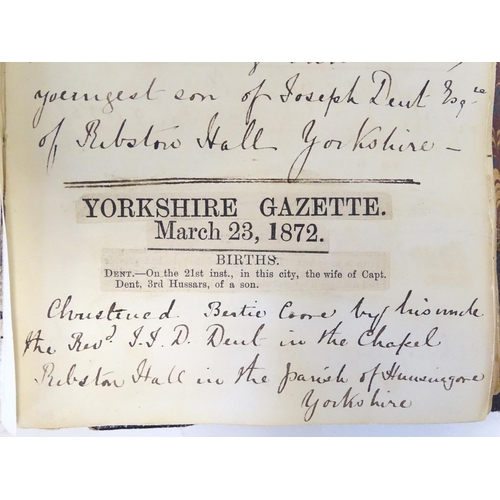 youngest son of Joseph Dent Esq^re
of Ribston Hall Yorkshire –
YORKSHIRE GAZETTE.
March 23, 1872.
BIRTHS.
DENT.—On the 21st inst., in this city, the wife of Capt.
Dent, 3rd Hussars, of a son.
Christened. Bertie Coore by his uncle
the Rev^d. J. J. D. Dent in the Chapel
Ribston Hall in the parish of Hunsingore
Yorkshire